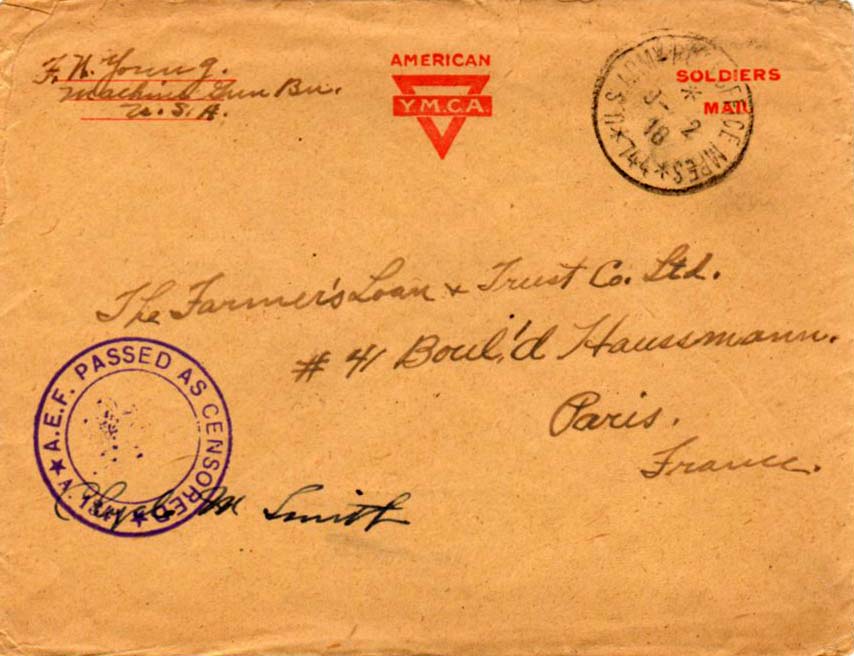 F. N. Young.
Machine Gun Bn.
U.S.A.
AMERICAN
Y.M.C.A.
SOLDIERS
MAIL
U.S. ARMY
2
18
The Farmer's Loan & Trust Co. Ltd.
# 41 Boul'd Haussmann.
Paris.
France.
A.E.F. PASSED AS CENSORED
M Smith